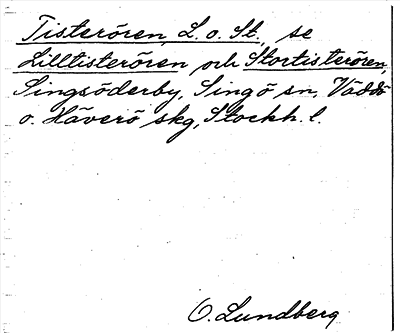 Tisterören, L. o. St., se
Lilltisterören och Stortisterören,
Singsöderby, Singö sn, Väddö
o. Häverö skg, Stockh. l.
O. Lundberg